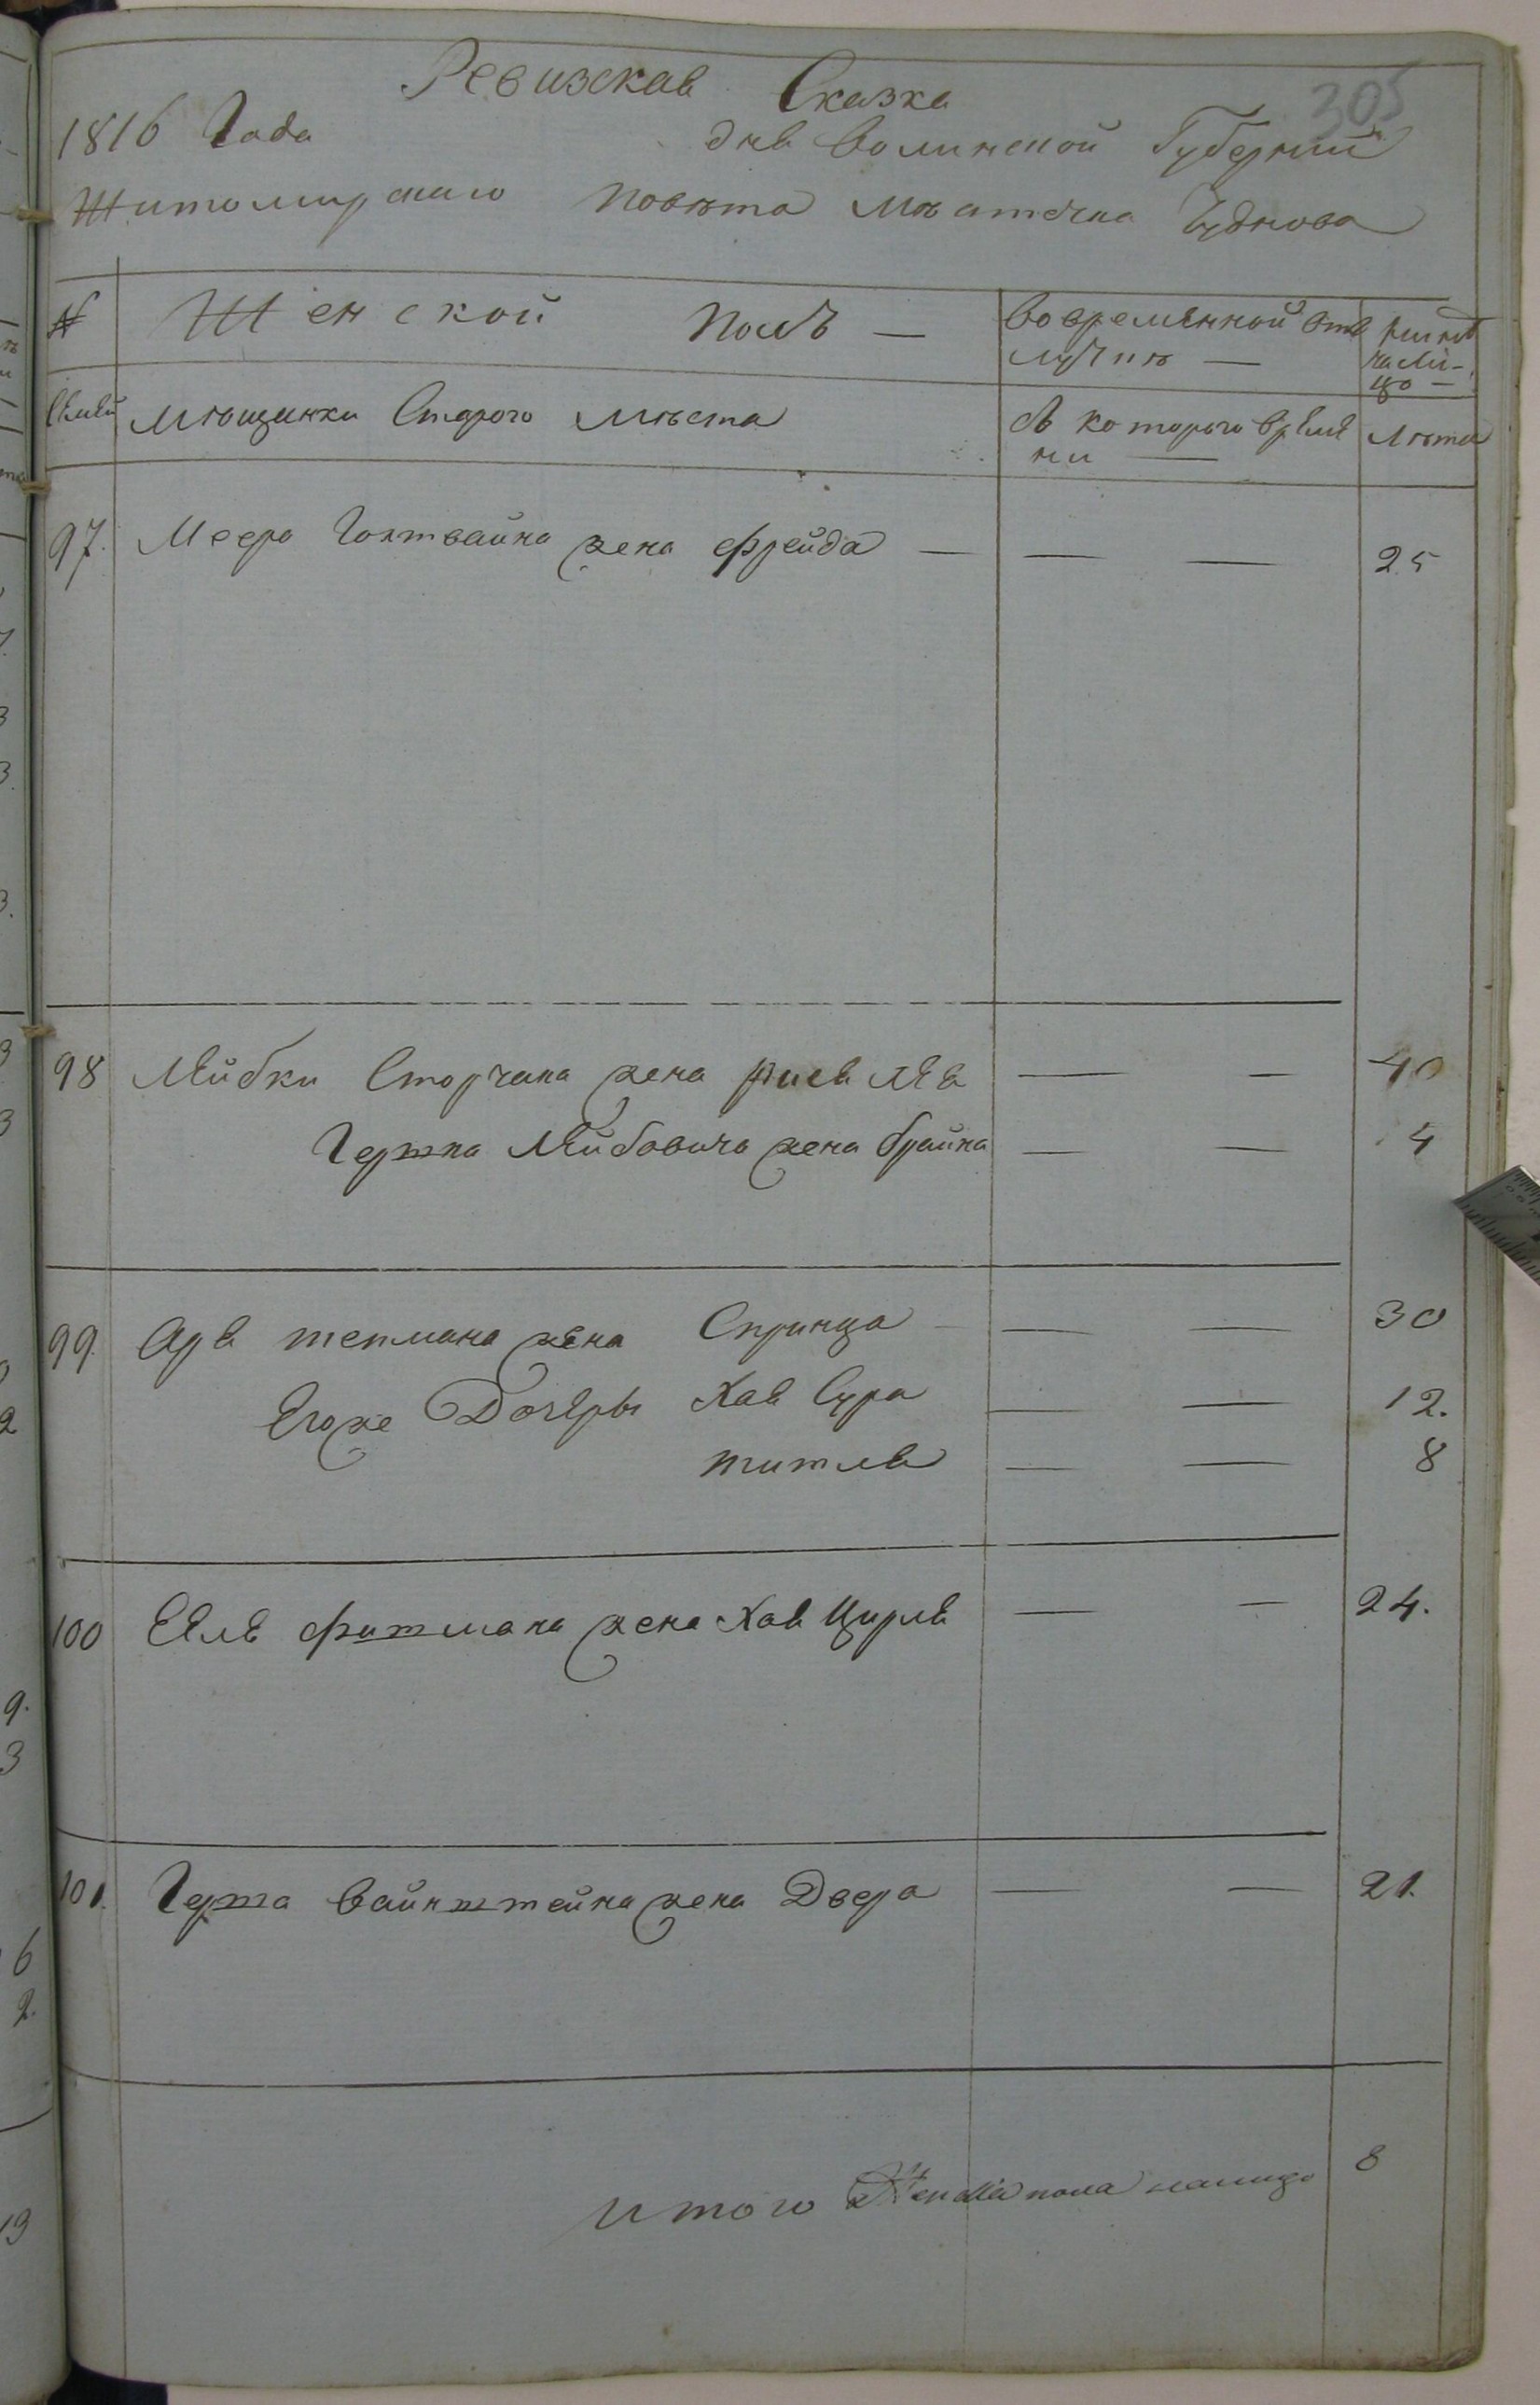 305
Ревизская Сказка
1816 Года дня Волинской Губернии
Житомирскаго Повѣта Мѣстечка Чуднова
№ Женской Полъ — Во временной отлучкѣ — нынѣ на лицо —
Семей Мѣщанки Старого Мѣста Съ которого времени — Лѣта
97. Меера Гохтвайна жена Фрейда — — — 25
98 Лейбки Сторчака жена Рися Лея — — 40
Гершка Лейбовича жена Брайна — — 4
99. Аря тетмана жена Спринца — — — 30
Егоже Дочеры Хая Сура — — 12.
титля — — 8
100 Еля Фитмана жена Хая Цирля — — 24.
101. Герша Вайнштейна жена Двера — — 21.
Итого Женска пола налицо 8